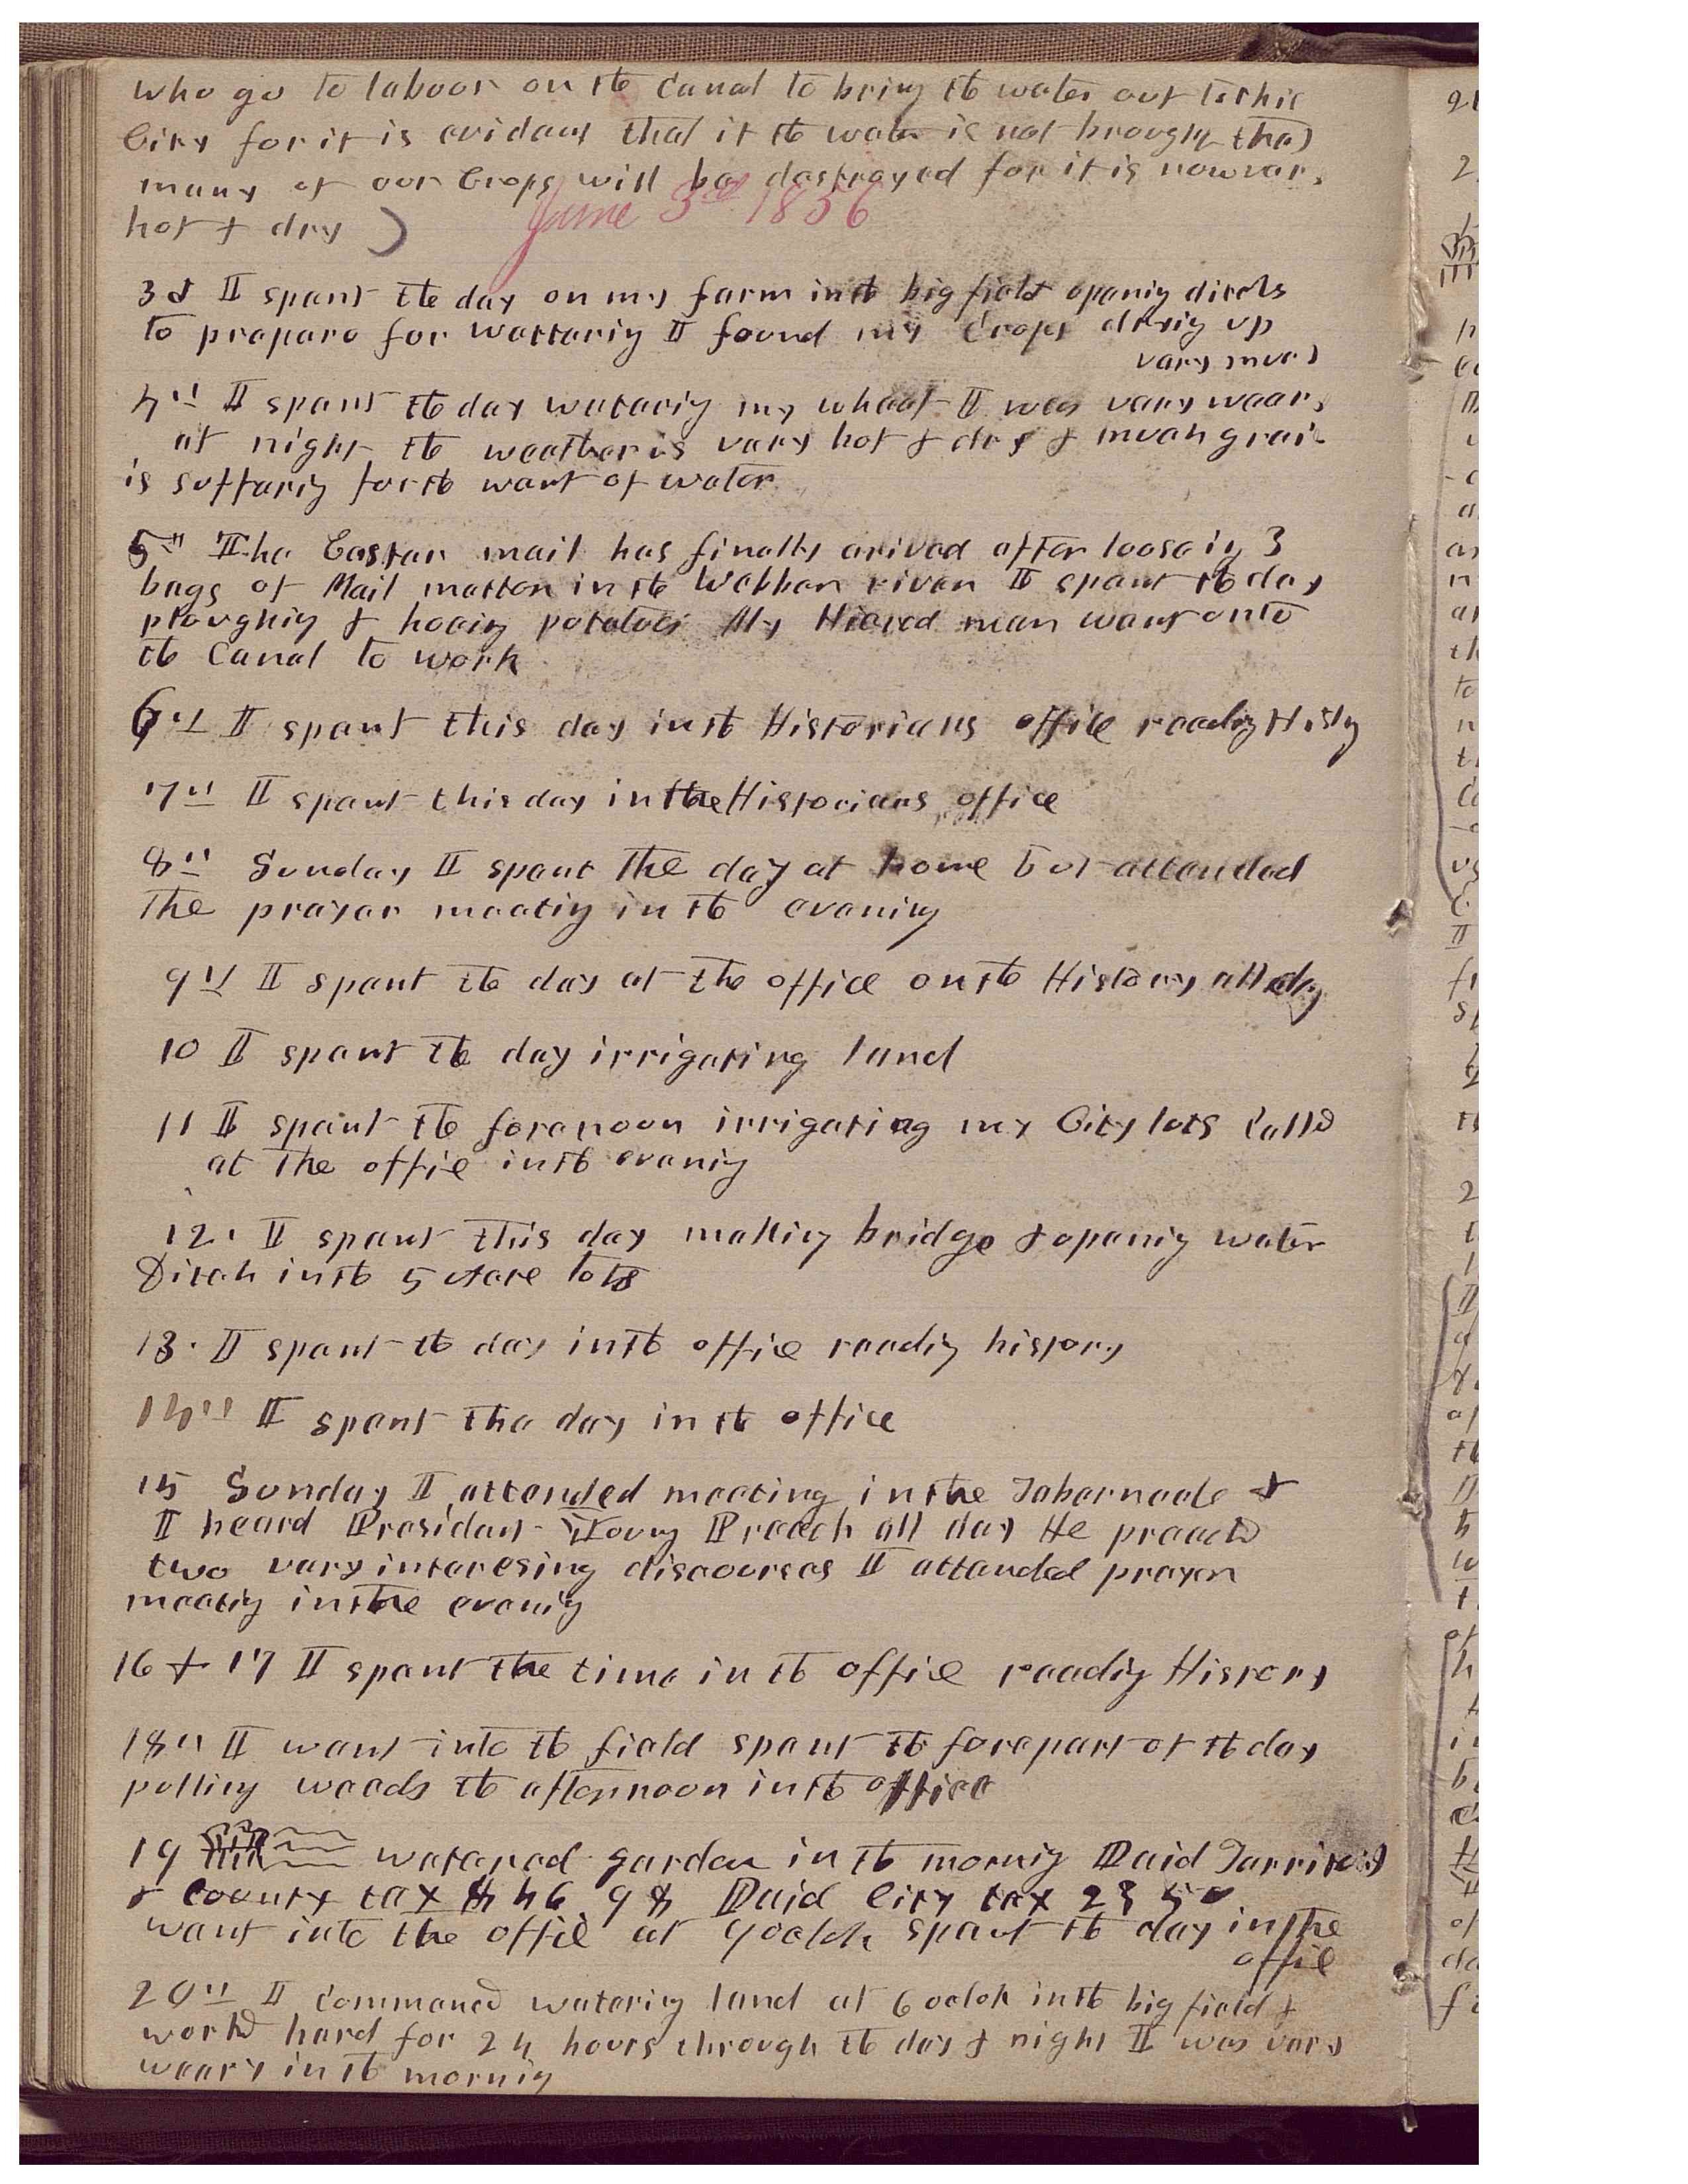 who go to labour on the Canal to bring the water out to this
City for it is evidant that if the water is not brought that
many of our Crops will be destroyed for it is now vary
hot & dry )
June 3rd 1856
3d I spent the day on my farm in the big field opening ditches
to prepare for wattering I found my Crops drying up
vary much
4th I spent the day watering my wheat I was vary weary
at night the weather is vary hot & dry & much grain
is suffering for the want of water
5th The Eastern mail has finally arived after looseing 3
bags of Mail matter in the Webber river I spent the day
ploughing & hoeing potatoes My Hiered man went onto
the Canal to work
6th I spent this day in the Historians office reading History
7th I spent this day in the Historians office
8th Sunday I spent the day at home but attended
the prayer meeting in the evening
9th I spent the day at the office on the History all day
10 I spent the day irrigating land
11 I spent the forenoon irrigating my City lots Calld
at the office in the evening
12. I spent this day making bridge & opening water
Ditch in the 5 Acre lots
13. I spent the day in the office reading history
14th I spent the day in the office
15 Sunday I attended meeting in the Tabernacle &
I heard President Young Preach all day He preachd
two vary interesing discourses I attended prayer
meeting in the evening
16 & 17 I spent the time in the office reading History
18th I went into the field spent the forepart of the day
pulling weeds the afternoon in the office
19 watered garden in the morning Paid Territorial
& County tax $46 98 Paid City tax 23 50
went into the office at 9 oclok spent the day in the
office
20th I commencd watering land at 6 oclok in the big field &
workd hard for 24 hours through the day & night I was vary
weary in the morning